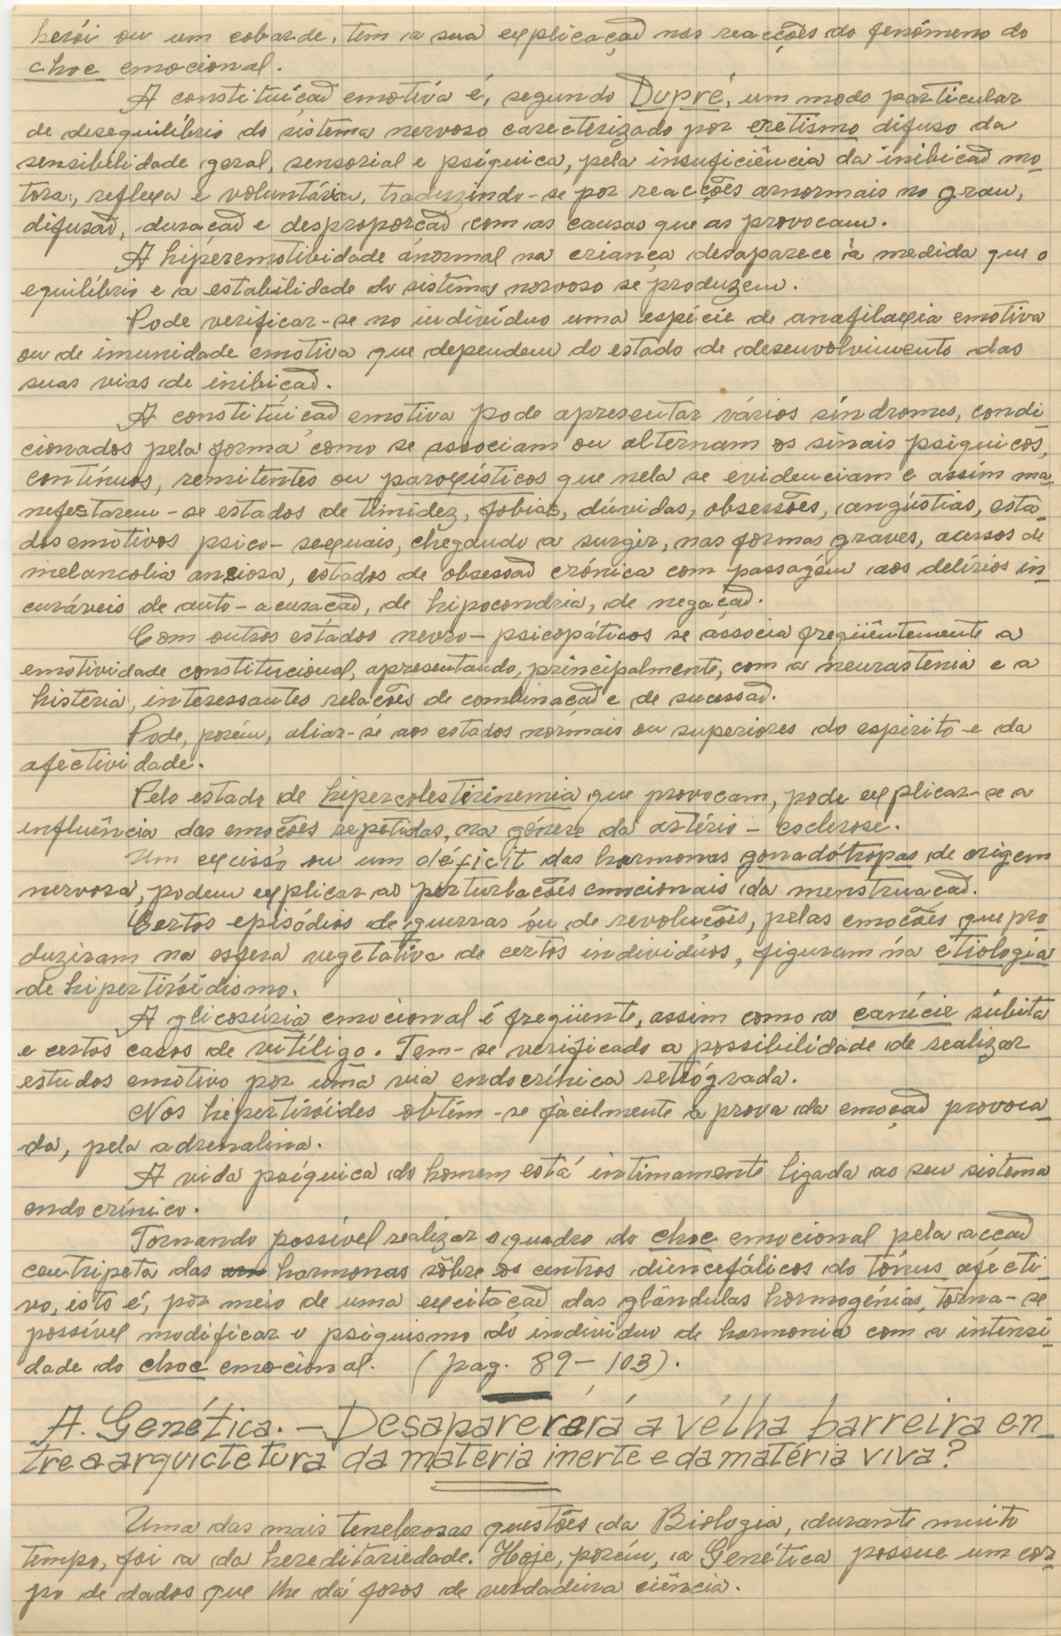 herói ou um cobarde, tem a sua explicação nas reacções do fenómeno do
choc emocional.
A constituição emotiva é, segundo Dupré, um modo particular
de desequilíbrio do sistema nervoso carecterizado por eretismo difuso da
sensibilidade geral, sensorial e psíquica, pela insuficiência da inibição mo-
tora, reflexa e voluntária, traduzindo-se por reacções anormais no grau,
difusão, duração e desproporção com as causas que as provocam.
A hiperemotividade anormal na criança desaparece à medida que o
equilíbrio e a estabilidade do sistema nervoso se produzem.
Pode verificar-se no indivíduo uma espécie de anafilaxia emotiva
ou de imunidade emotiva que dependem do estado de desenvolvimento das
suas vias de inibição.
A constituição emotiva pode apresentar vários síndromes, condi-
cionados pela forma como se associam ou alternam os sinais psíquicos,
contínuos, remitentes ou paroxísticos que nela se evidenciam e assim ma-
nefestarem-se estados de timidez, fobias, dúvidas, obsessões, angústias, esta-
dos emotivos psico-sexuais, chegando a surgir, nas formas graves, acessos de
melancolia ansiosa, estados de obsessão crónica com passagem aos delírios in-
curáveis de auto-acusação, de hipocondria, de negação.
Com outros estados nevro-psicopáticos se associa freqüentemente a
emotividade constitucional, apresentando, principalmente, com a neurastenia e a
histeria, interessantes relações de combinação e de sucessão.
Pode, porém, aliar-se aos estados normais ou superiores do espírito e da
afectividade.
Pelo estado de hipercolesterinemia que provocam, pode explicar-se a
influência das emoções repetidas, na génese da artério-esclerose.
Um excesso ou um déficit das hormonas gonadótropas de origem
nervosa, podem explicar as perturbações emocionais da menstruação.
Certos episódios de guerras ou de revoluções, pelas emoções que pro-
duziram na esfera vegetativa de certos individúos, figuram na etiologia
de hipertiróidismo.
A glicosúria emocional é freqüente, assim como a canície súbita
e certos casos de vitíligo. Tem-se verificado a possibilidade de realizar
estudos emotivo por uma via endocrínica retrógrada.
Nos hipertiróides obtém-se fàcilmente a prova da emoção provoca-
da, pela adrenalina.
A vida psíquica do homem está intimamente ligada ao seu sistema
endocrínico.
Tornando possível realizar o quadro do choc emocional pela acção
centrípeta das hormonas sôbre os centros diencefálicos do tónus afecti-
vo, isto é, por meio de uma excitação das glândulas hormogénias, torna-se
possível modificar o psiquismo do indivíduo de harmonia com a intensi-
dade do choc emocional. (pag. 89-103).
A. Genética. - Desaparererá a vélha barreira en-
tre a arquictetura da matéria inerte e da matéria viva?
Uma das mais tenebrosas questões da Biologia, durante muito
tempo, foi a da hereditariedade. Hoje, porém, a Genética possue um cor-
po de dados que lhe dá foros de verdadeira ciência.